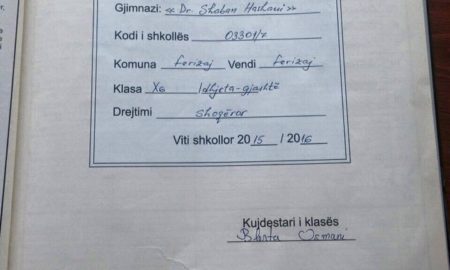 Gjimnazi: «Dr. Shaban Hashani»
Kodi i shkollës 03301/7
Komuna Ferizaj Vendi Ferizaj
Klasa X6 Idhjeta-gjashtë
Drejtimi Shoqëror
Viti shkollor 2015 / 2016
Kujdestari i klasës
Osmani